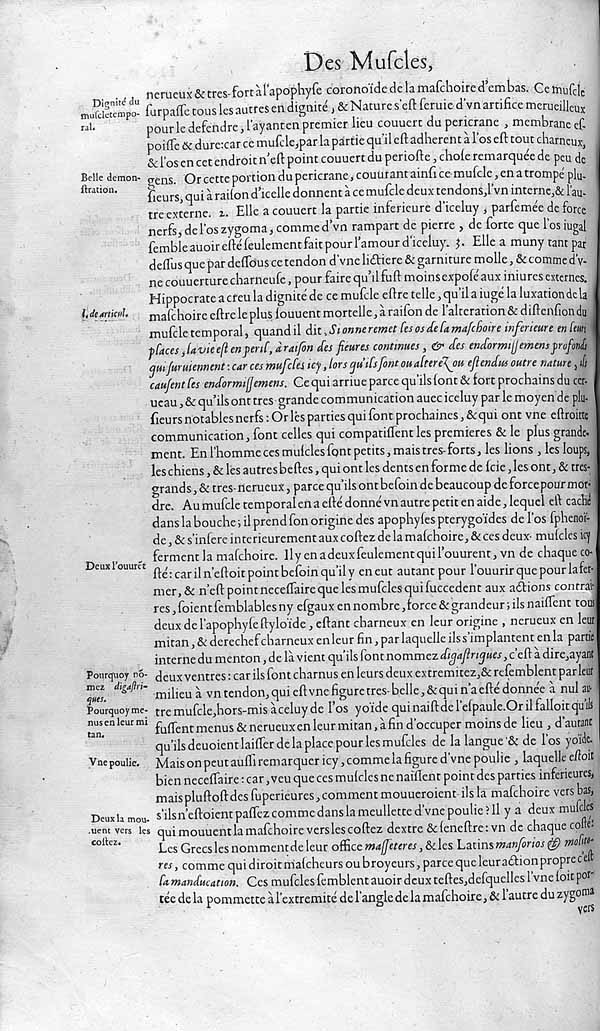 Des Muſcles,
nerueux & tres-fort à l'apophyſe coronoïde de la maſchoire d'embas. Ce muſcle
Dignité du
muſcle tempo-
ral.
ſurpaſſe tous les autres en dignité, & Nature s'eſt ſeruie d'vn artifice merueilleux
pour le defendre, l'ayant en premier lieu couuert du pericrane, membrane eſ-
poiſſe & dure: car ce muſcle, par la partie qu'il eſt adherent à l'os eſt tout charneux,
& l'os en cet endroit n'eſt point couuert du perioſte, choſe remarquée de peu de
Belle demon-
ſtration.
gens. Or cette portion du pericrane, couurant ainſi ce muſcle, en a trompé plu-
ſieurs, qui à raiſon d'icelle donnent à ce muſcle deux tendons, l'vn interne, & l'au-
tre externe. 2. Elle a couuert la partie inferieure d'iceluy, parſemée de force
nerfs, de l'os zygoma, comme d'vn rampart de pierre, de ſorte que l'os iugal
ſemble auoir eſté ſeulement fait pour l'amour d'iceluy. 3. Elle a muny tant par
deſſus que par deſſous ce tendon d'vne lictiere & garniture molle, & comme d'v-
ne couuerture charneuſe, pour faire qu'il fuſt moins expoſé aux iniures externes.
Hippocrate a creu la dignité de ce muſcle eſtre telle, qu'il a iugé la luxation de la
l. de articul.
maſchoire eſtre le plus ſouuent mortelle, à raiſon de l'alteration & diſtenſion du
muſcle temporal, quand il dit, Si on ne remet les os de la maſchoire inferieure en leurs
places, la vie eſt en peril, à raiſon des fieures continues, & des endormiſſemens profonds
qui ſuruiennent: car ces muſcles icy, lors qu'ils ſont ou alterez ou eſtendus outre nature, ils
cauſent les endormiſſemens. Ce qui arriue parce qu'ils ſont & fort prochains du cer-
ueau, & qu'ils ont tres-grande communication auec iceluy par le moyen de plu-
ſieurs notables nerfs: Or les parties qui ſont prochaines, & qui ont vne eſtroitte
communication, ſont celles qui compatiſſent les premieres & le plus grande-
ment. En l'homme ces muſcles ſont petits, mais tres-forts, les lions, les loups,
les chiens, & les autres beſtes, qui ont les dents en forme de ſcie, les ont, & tres-
grands, & tres-nerueux, parce qu'ils ont beſoin de beaucoup de force pour mor-
dre. Au muſcle temporal en a eſté donné vn autre petit en aide, lequel eſt caché
dans la bouche; il prend ſon origine des apophyſes pterygoïdes de l'os ſphenoï-
de, & s'inſere interieurement aux coſtez de la maſchoire, & ces deux muſcles icy
Deux l'ouurēt
ferment la maſchoire. Il y en a deux ſeulement qui l'ouurent, vn de chaque co-
ſté: car il n'eſtoit point beſoin qu'il y en eut autant pour l'ouurir que pour la fer-
mer, & n'eſt point neceſſaire que les muſcles qui ſuccedent aux actions contrai-
res, ſoient ſemblables ny eſgaux en nombre, force & grandeur; ils naiſſent tous
deux de l'apophyſe ſtyloïde, eſtant charneux en leur origine, nerueux en leur
mitan, & derechef charneux en leur fin, par laquelle ils s'implantent en la partie
interne du menton, de là vient qu'ils ſont nommez digaſtriques, c'eſt à dire, ayant
Pourquoy nō-
mez digaſtri-
ques.
deux ventres: car ils ſont charnus en leurs deux extremitez, & reſemblent par leur
milieu à vn tendon, qui eſt vne figure tres-belle, & qui n'a eſté donnée à nul au-
Pourquoy me-
nus en leur mi
tan.
tre muſcle, hors-mis à celuy de l'os yoïde qui naiſt de l'eſpaule. Or il falloit qu'ils
fuſſent menus & nerueux en leur mitan, à fin d'occuper moins de lieu, d'autant
qu'ils deuoient laiſſer de la place pour les muſcles de la langue & de l'os yoïde.
Vne poulie.
Mais on peut auſſi remarquer icy, comme la figure d'vne poulie, laquelle eſtoit
bien neceſſaire: car, veu que ces muſcles ne naiſſent point des parties inferieures,
mais pluſtoſt des ſuperieures, comment mouueroient-ils la maſchoire vers bas,
s'ils n'eſtoient paſſez comme dans la meullette d'vne poulie? Il y a deux muſcles
Deux la mou-
uent vers les
coſtez.
qui mouuent la maſchoire vers les coſtez dextre & ſeneſtre: vn de chaque coſté:
Les Grecs les nomment de leur office maſſeteres, & les Latins manſorios & molito-
res, comme qui diroit maſcheurs ou broyeurs, parce que leur action propre c'eſt
la manducation. Ces muſcles ſemblent auoir deux teſtes, deſquelles l'vne ſoit por-
tée de la pommette à l'extremité de l'angle de la maſchoire, & l'autre du zygoma
vers